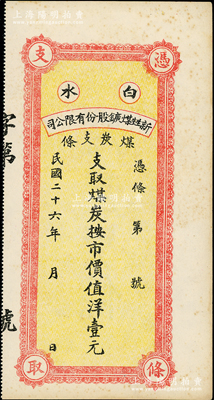 上海陽明拍賣
憑條取支
白水
新鎂煤礦股份有限公司
煤炭支條
憑條第 號
支取煤炭按市價值洋壹元
民國二十六年 月 日
字第 號